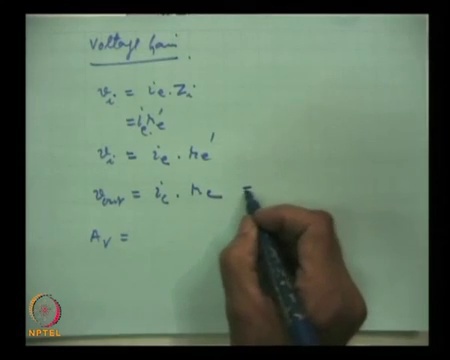 Voltage Gain.
v_i = i_e . Z_i
= i_e . r_e'
v_i = i_e . r_e'
v_out = i_c . r_c =
A_v =
NPTEL